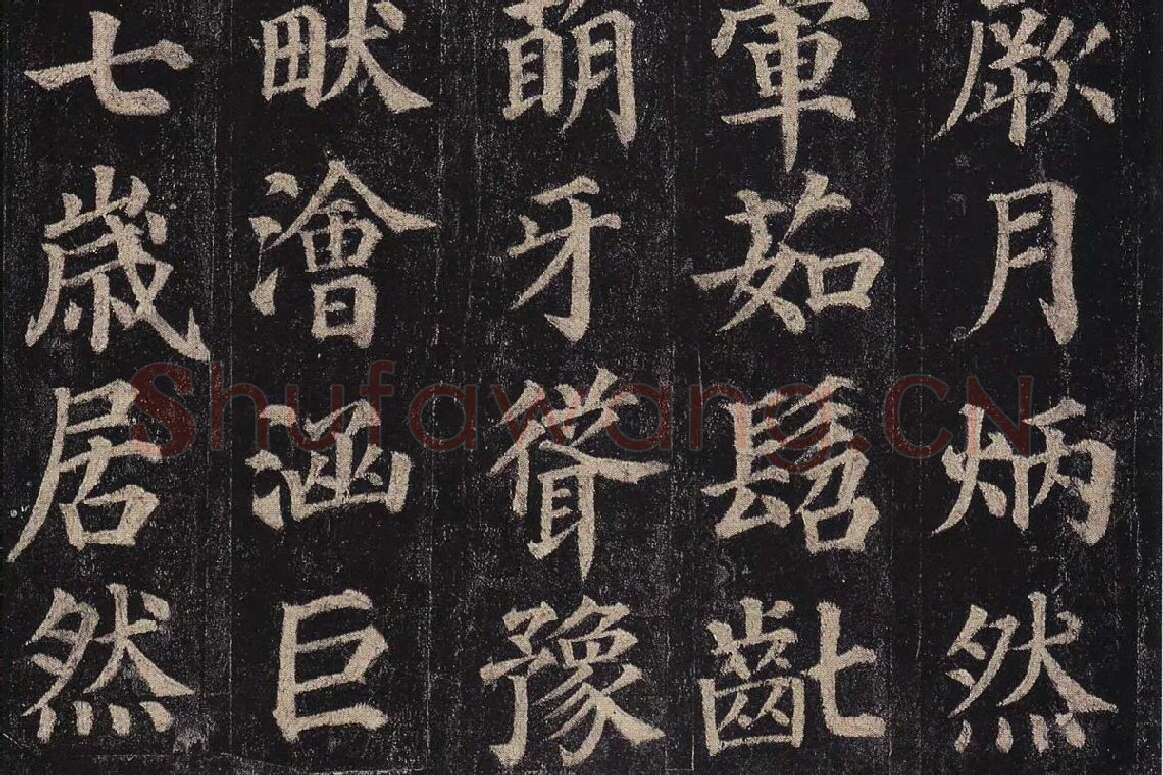 厥月炳然
葷茹髫齔
萌牙聳豫
畎澮涵巨
七歲居然
Shufawang.CN